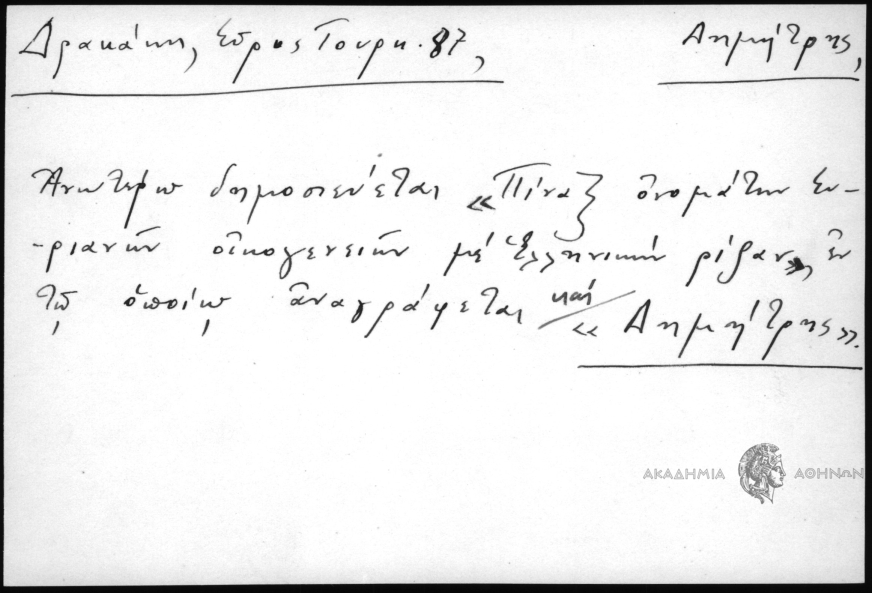 Δρακάκη, Σῦρος Τουρκ. 87, Δημήτρης,
Ἀνωτέρω δημοσιεύεται «Πίναξ ὀνομάτων Συ-
-ριανῶν οἰκογενειῶν μέ Ἑλληνικήν ρίζαν», ἐν
τῷ ὁποίῳ ἀναγράφεται καί «Δημήτρης».
ΑΚΑΔΗΜΙΑ ΑΘΗΝΩΝ